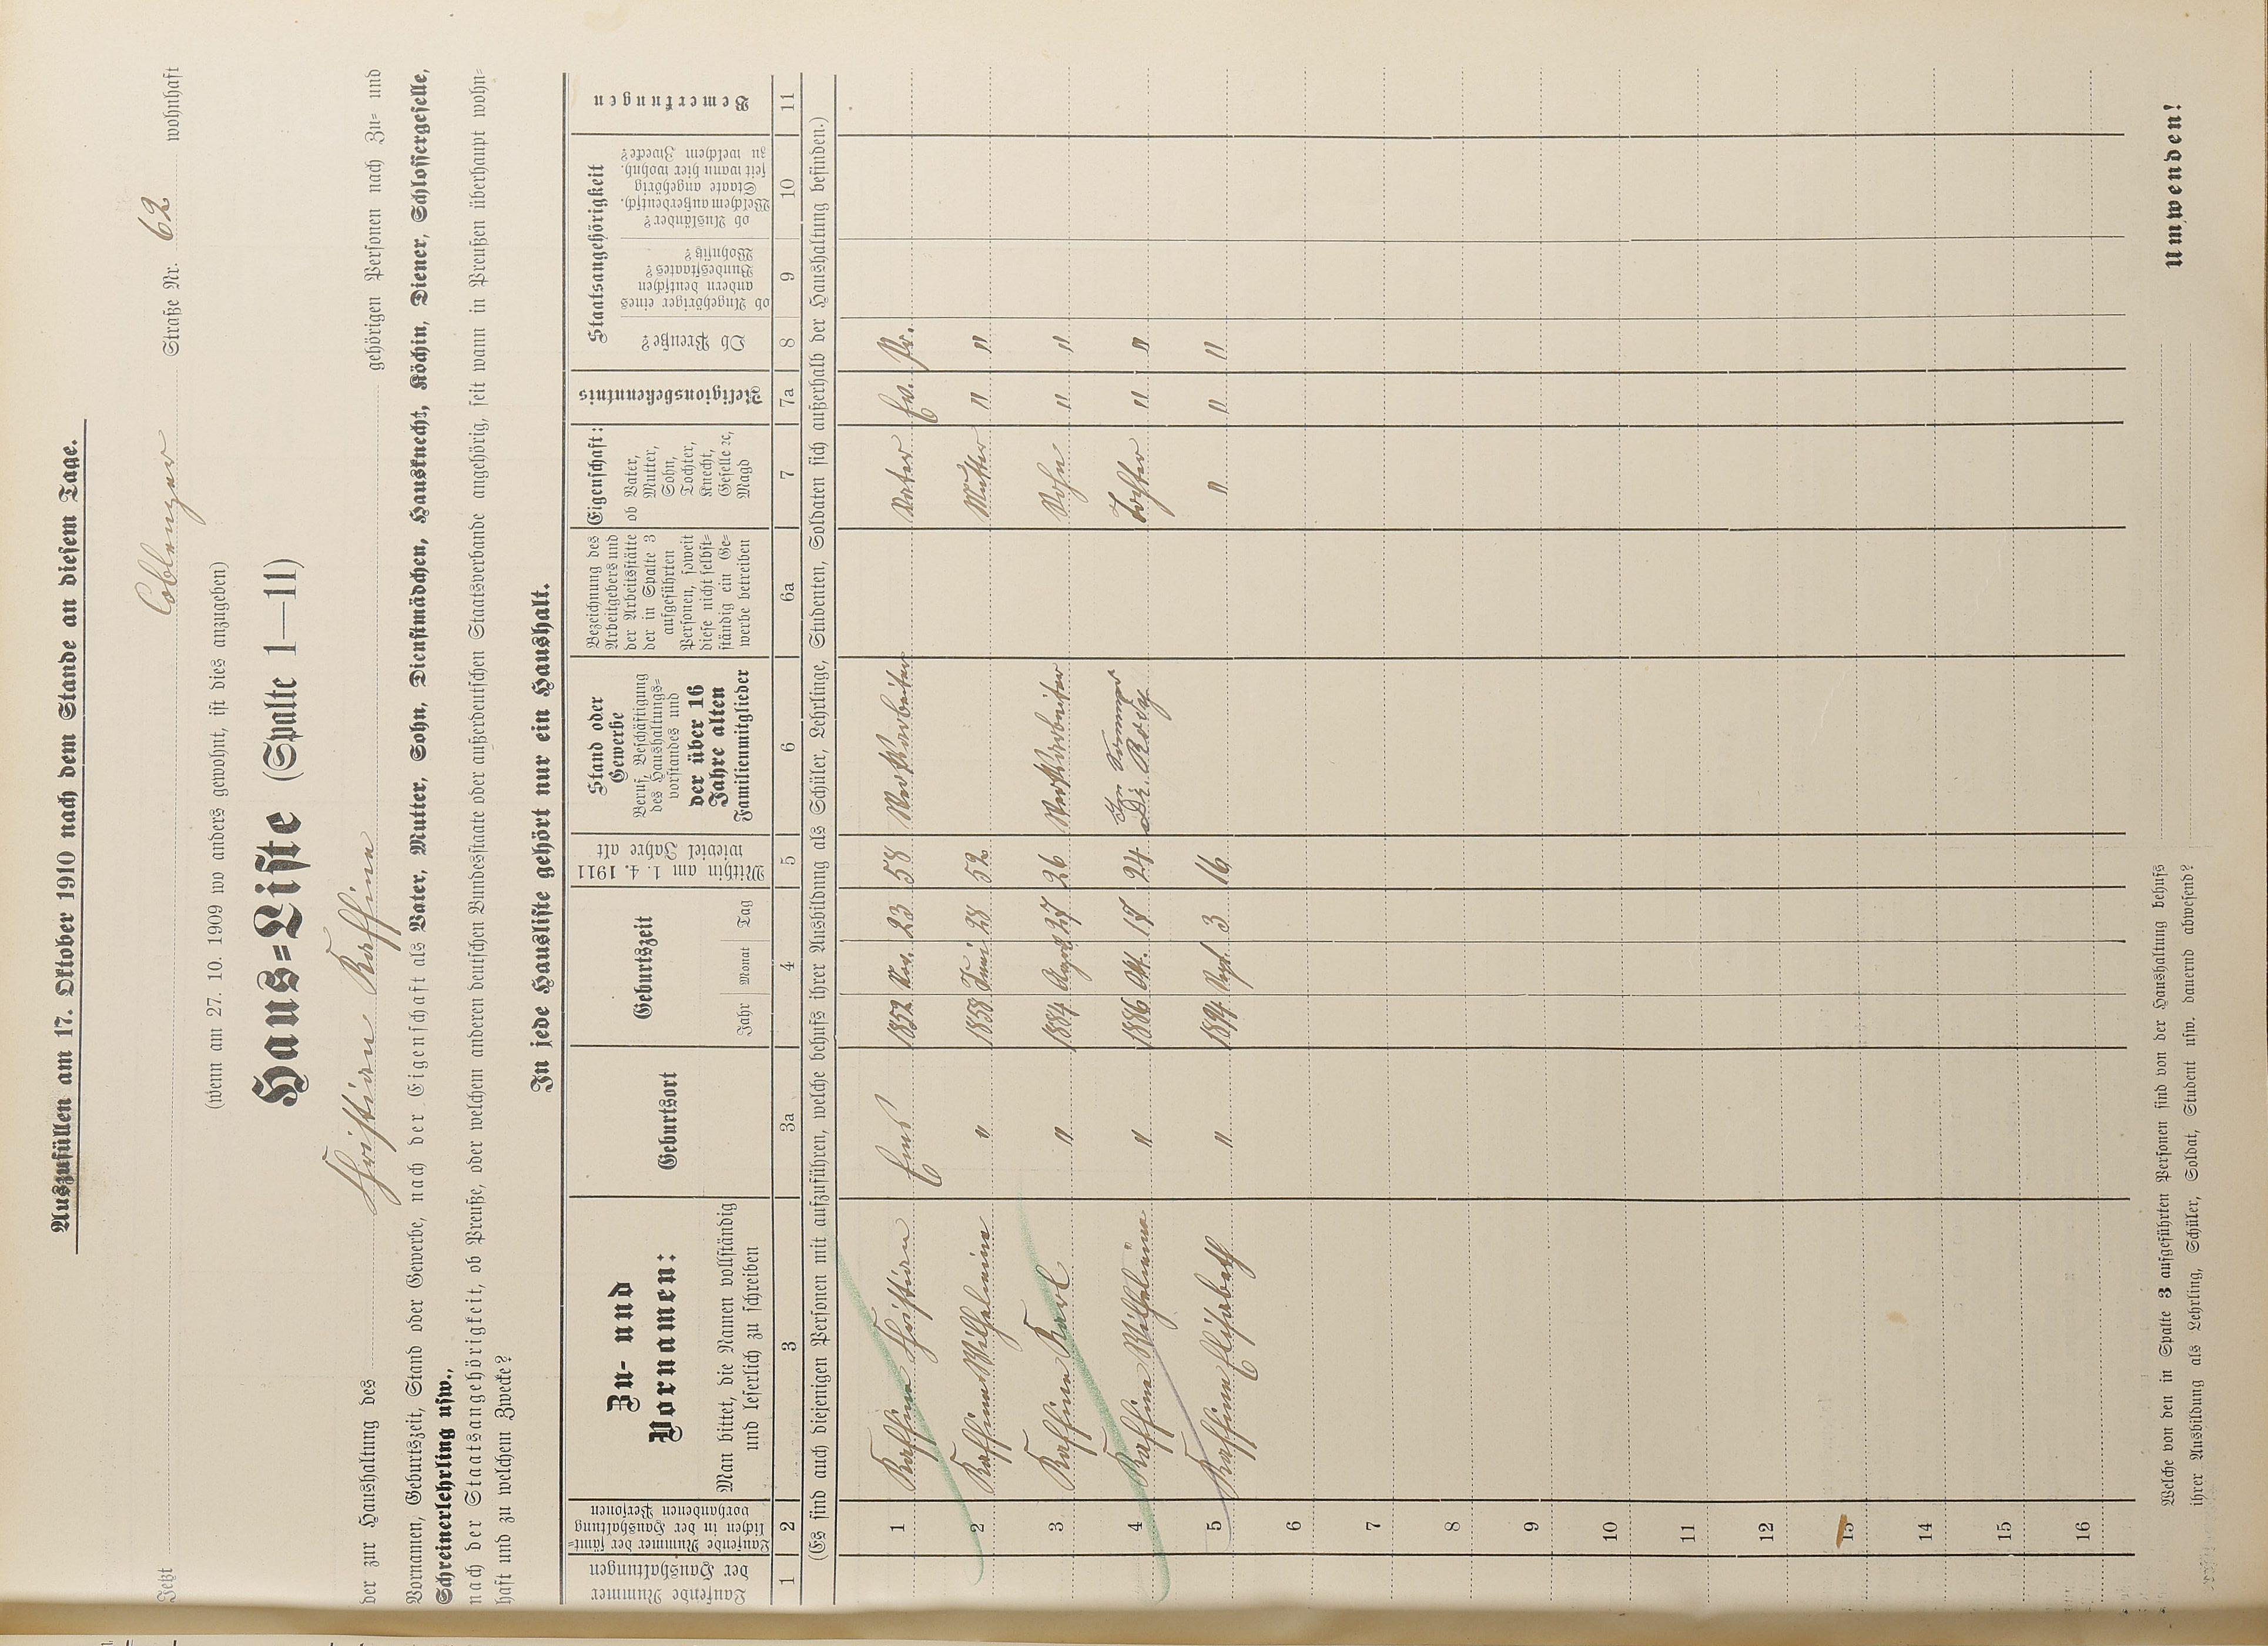 Auszufüllen am 17. Oktober 1910 nach dem Stande an diesem Tage.
Jetzt Coblenzer Straße Nr. 62 wohnhaft
(wenn am 27. 10. 1909 wo anders gewohnt, ist dies anzugeben)
Haus=Liste (Spalte 1—11)
der zur Haushaltung des Christian gehörigen Personen nach Zu= und
Vornamen, Geburtszeit, Stand oder Gewerbe, nach der Eigenschaft als Vater, Mutter, Sohn, Dienstmädchen, Hausknecht, Köchin, Diener, Schlossergeselle,
Schreinerlehrling usw.,
nach der Staatsangehörigkeit, ob Preuße, oder welchem anderen deutschen Bundesstaate oder außerdeutschen Staatsverbande angehörig, seit wann in Preußen überhaupt wohn=
haft und zu welchem Zwecke?
In jede Hausliste gehört nur ein Haushalt.
Laufende Nummer
der Haushaltungen
Laufende Nummer der sämt=
lichen in der Haushaltung
vorhandenen Personen
Zu- und
Vornamen:
Man bittet, die Namen vollständig
und leserlich zu schreiben
Geburtsort
Geburtszeit
Jahr Monat Tag
Mithin am 1. 4. 1911
wieviel Jahre alt
Stand oder
Gewerbe
Beruf, Beschäftigung
des Haushaltungs=
vorstandes und
der über 16
Jahre alten
Familienmitglieder
Bezeichnung des
Arbeitgebers und
der Arbeitsstätte
der in Spalte 3
aufgeführten
Personen, soweit
diese nicht selbst=
ständig ein Ge=
werbe betreiben
Eigenschaft:
ob Vater,
Mutter,
Sohn,
Tochter,
Knecht,
Geselle ꝛc,
Magd
Religionsbekenntnis
Staatsangehörigkeit
Ob Preuße?
ob Angehöriger eines
andern deutschen
Bundesstaates?
Wohnsitz?
ob Ausländer?
Welchem außerdeutsch.
Staate angehörig
seit wann hier wohnh.
zu welchem Zwecke?
Bemerkungen
1 2 3 3a 4 5 6 6a 7 7a 8 9 10 11
(Es sind auch diejenigen Personen mit aufzuführen, welche behufs ihrer Ausbildung als Schüler, Lehrlinge, Studenten, Soldaten sich außerhalb der Haushaltung befinden.)
1 Christian Ems 1852 Nov. 23 58 Vater Ev. Pr.
2 Wilhelmine " 1858 Juni 28 52 Mutter " "
3 Karl " 1884 27 26 Sohn " "
4 Wilhelmine " 1886 Okt. 17 24 Tochter " "
5 Elisabeth " 1894 Sept. 3 16 " " "
6
7
8
9
10
11
12
13
14
15
16
Welche von den in Spalte 3 aufgeführten Personen sind von der Haushaltung behufs
ihrer Ausbildung als Lehrling, Schüler, Soldat, Student usw. dauernd abwesend?
Umwenden!